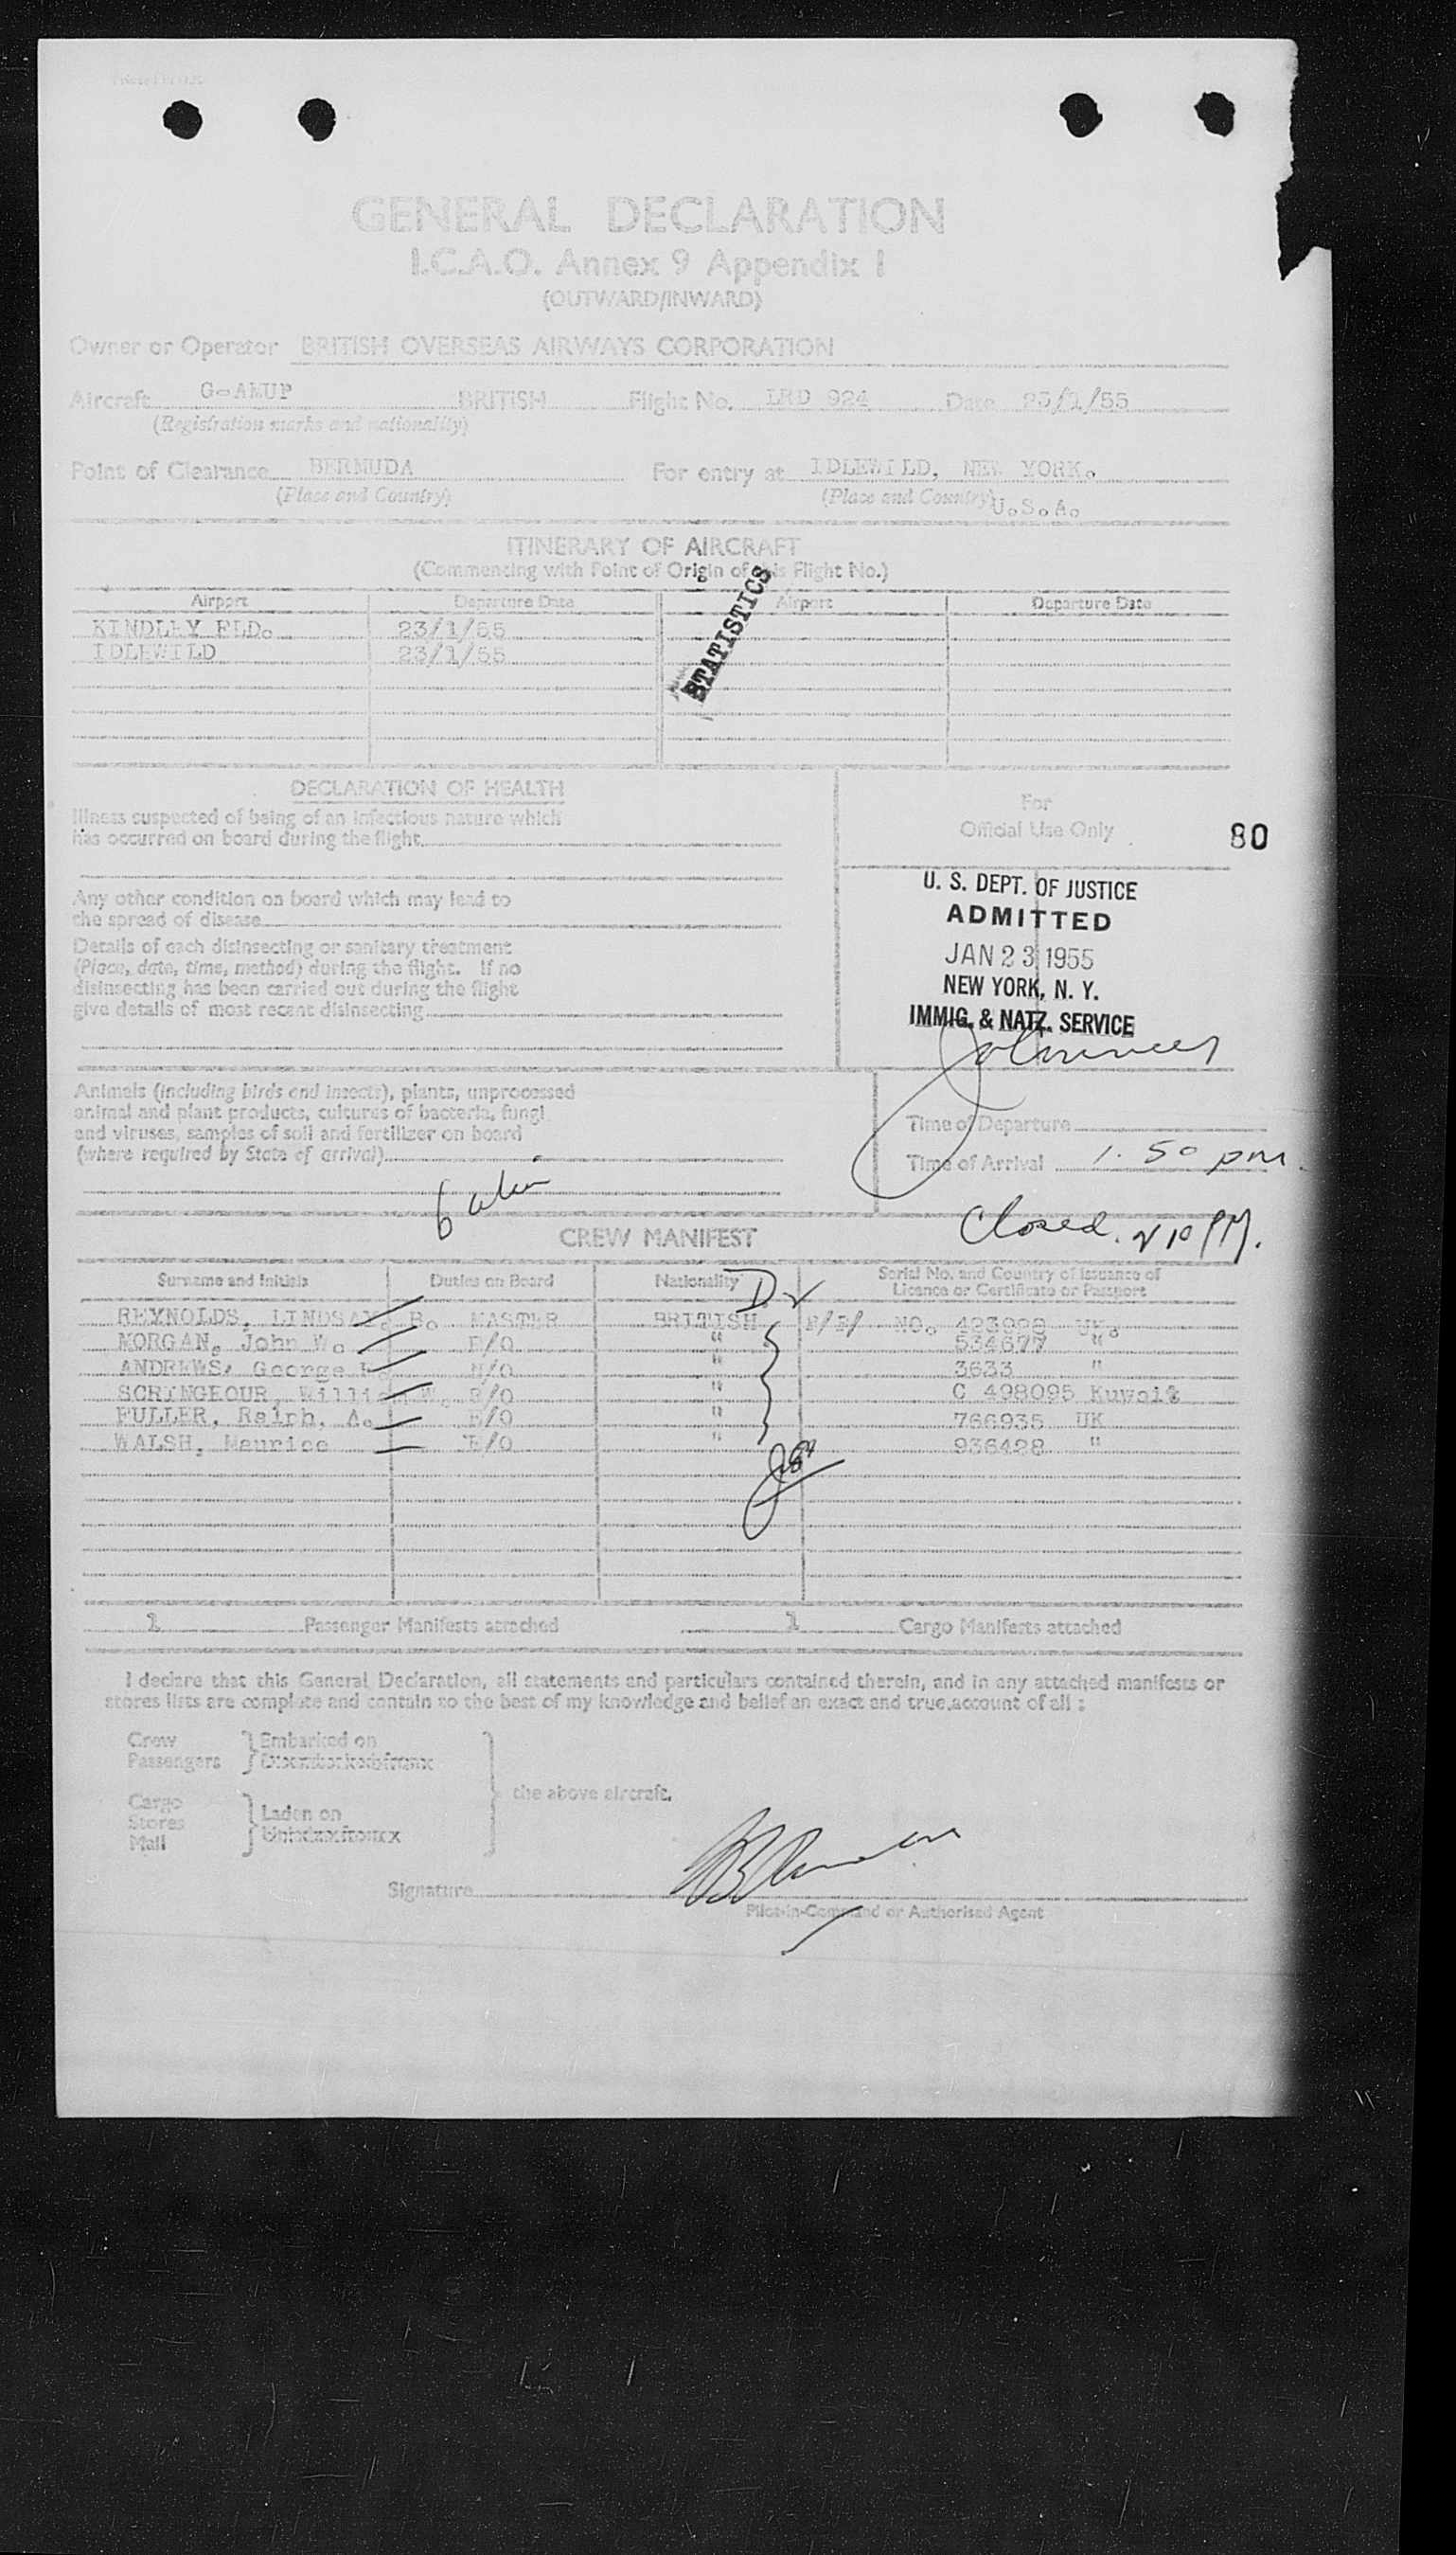 GENERAL DECLARATION
I.C.A.O. Annex 9 Appendix 1
(OUTWARD/INWARD)
Owner or Operator BRITISH OVERSEAS AIRWAYS CORPORATION
Aircraft G-AMUP BRITISH Flight No. LRD 924 Date 23/1/55
(Registration marks and nationality)
Point of Clearance BERMUDA For entry at IDLEWILD, NEW YORK.
(Place and Country) (Place and Country) U.S.A.
ITINERARY OF AIRCRAFT
(Commencing with Point of Origin of this Flight No.)
STATISTICS
Airport Departure Date Airport Departure Date
KINDLEY FLD. 23/1/55
IDLEWILD 23/1/55
DECLARATION OF HEALTH
Illness suspected of being of an infectious nature which
has occurred on board during the flight
Any other condition on board which may lead to
the spread of disease
Details of each disinsecting or sanitary treatment
(Place, date, time, method) during the flight. If no
disinsecting has been carried out during the flight
give details of most recent disinsecting
For
Official Use Only
80
U. S. DEPT. OF JUSTICE
ADMITTED
JAN 23 1955
NEW YORK, N. Y.
IMMIG. & NATZ. SERVICE
Animals (including birds and insects), plants, unprocessed
animal and plant products, cultures of bacteria, fungi
and viruses, samples of soil and fertilizer on board
(where required by State of arrival)
Time of Departure
Time of Arrival 1.50 pm.
6
Closed. 2 10 PM.
CREW MANIFEST
Surname and Initials Duties on Board Nationality Serial No. and Country of Issuance of
Licence or Certificate or Passport
REYNOLDS, LINDSAY. B. MASTER BRITISH NO. 423928 UK.
MORGAN, John W. F/O " 534677 "
ANDREWS, George N/O " 3633 "
SCRINGEOUR, W. R/O " C 498095 Kuwait
FULLER, Ralph, A. E/O " 766935 UK
WALSH, Maurice E/O " 936428 "
1 Passenger Manifests attached 1 Cargo Manifests attached
I declare that this General Declaration, all statements and particulars contained therein, and in any attached manifests or
stores lists are complete and contain to the best of my knowledge and belief an exact and true account of all :
Crew Embarked on
Passengers
the above aircraft.
Cargo
Stores Laden on
Mail
Signature
Pilot-in-Command or Authorised Agent